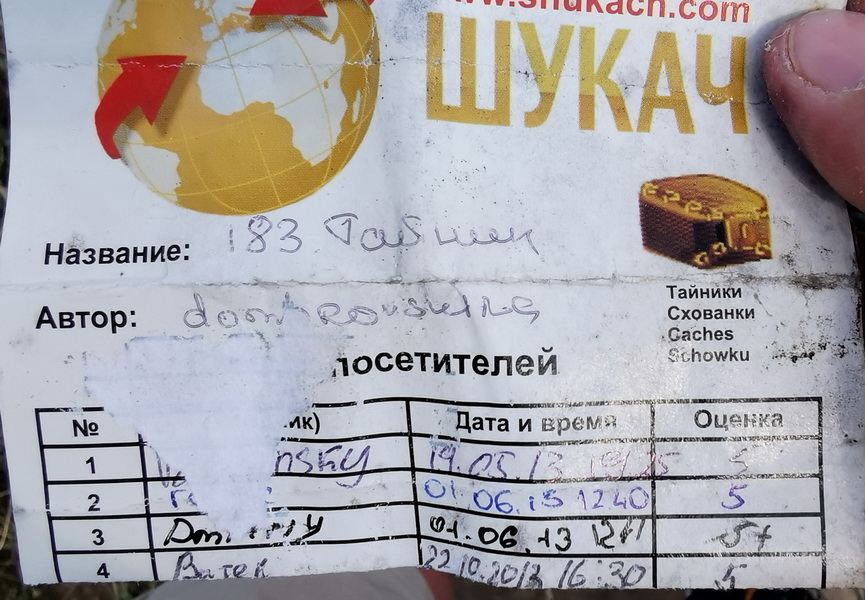 www.shukach.com
ШУКАЧ
Название: 183 Тайник
Автор:
Тайники
Схованки
Caches
Schowku
посетителей
№ ик) Дата и время Оценка
1 nsky 19.05.13 5
2 01.06.13 1240 5
3 01.06.13 5+
4 Витек 22.10.2013 16:30 5